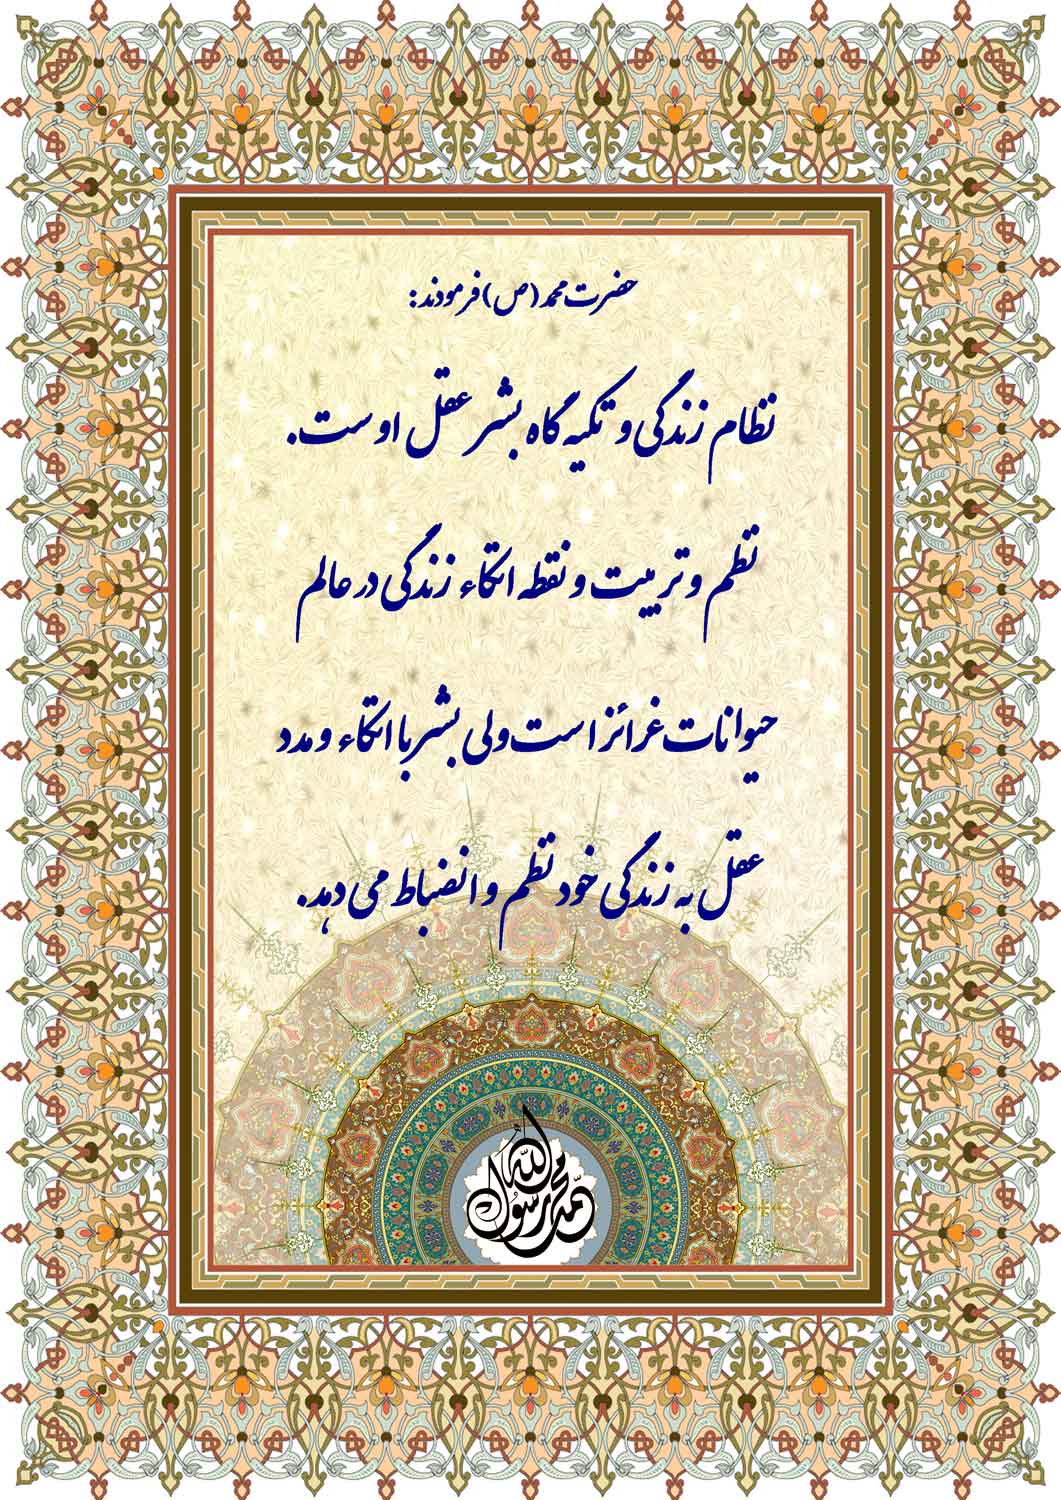 حضرت محمد (ص) فرمودند:
نظام زندگی و تکیه گاه بشر عقل اوست.
نظم و تربیت و نقطه اتکاء زندگی در عالم
حیوانات غرائز است ولی بشر با اتکاء و مدد
عقل به زندگی خود نظم و انضباط می دهد.
محمد رسول الله